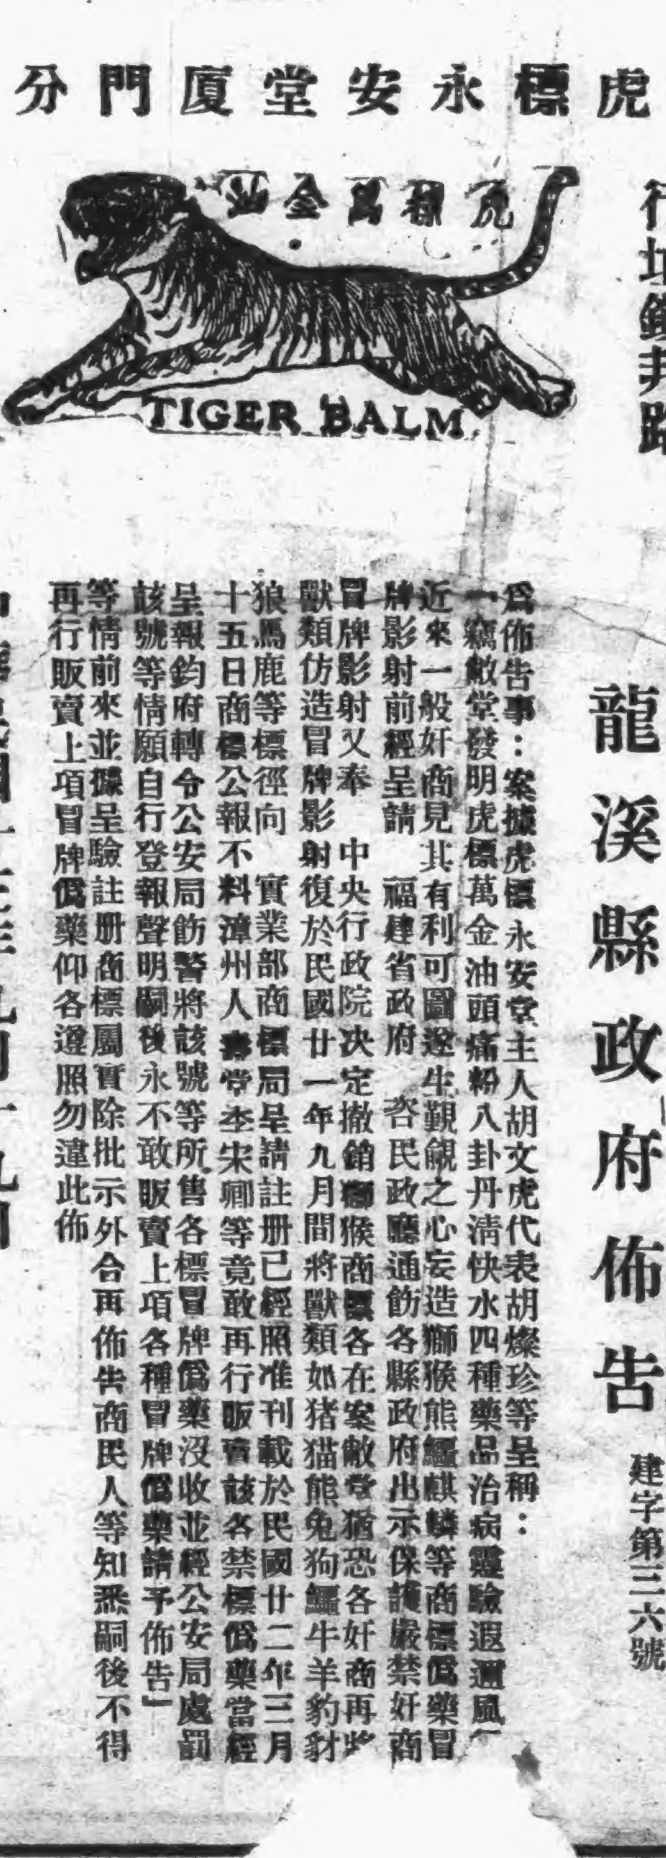 虎標永安堂廈門分
虎標萬金油
TIGER BALM
龍溪縣政府佈告
建字第三六號
爲佈告事：案據虎標永安堂主人胡文虎代表胡燦珍等呈稱：
「竊敝堂發明虎標萬金油頭痛粉八卦丹清快水四種藥品治病靈驗遐邇風
近來一般奸商見其有利可圖遂生覬覦之心妄造獅猴熊鱷麒麟等商標僞藥冒
牌影射前經呈請 福建省政府 咨民政廳通飭各縣政府出示保護嚴禁奸商
冒牌影射又奉 中央行政院決定撤銷獅猴商標各在案敝堂猶恐各奸商再將
獸類仿造冒牌影射復於民國廿一年九月間將獸類如猪猫熊兔狗鱷牛羊豹豺
狼馬鹿等標徑向 實業部商標局呈請註册已經照准刊載於民國廿二年三月
十五日商標公報不料漳州人壽堂李宋卿等竟敢再行販賣該各禁標僞藥當經
呈報鈞府轉令公安局飭警將該號等所售各標冒牌僞藥沒收並經公安局處罰
該號等情願自行登報聲明嗣後永不敢販賣上項各種冒牌僞藥請予佈告」
等情前來並據呈驗註册商標屬實除批示外合再佈告商民人等知悉嗣後不得
再行販賣上項冒牌僞藥仰各遵照勿違此佈